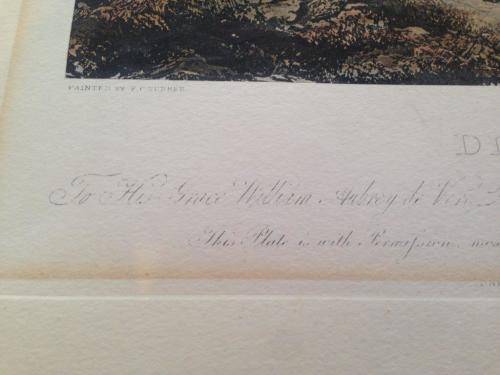 PAINTED BY F. C. TURNER.
D
To His Grace William Aubrey de Vere
This Plate is with Permission